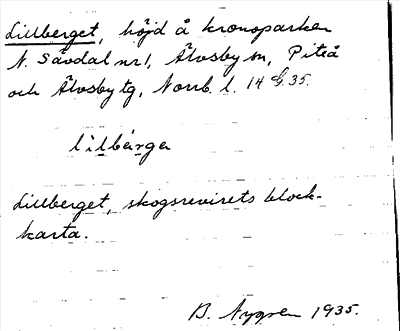 Lillberget, höjd å kronoparken
N. Sävdal nr 1, Älvsby sn, Piteå
och Älvsby tg, Norrb. l. 14 G. 35.
lilbärga
Lillberget, skogsrevirets block-
karta.
B. Nygren 1935.